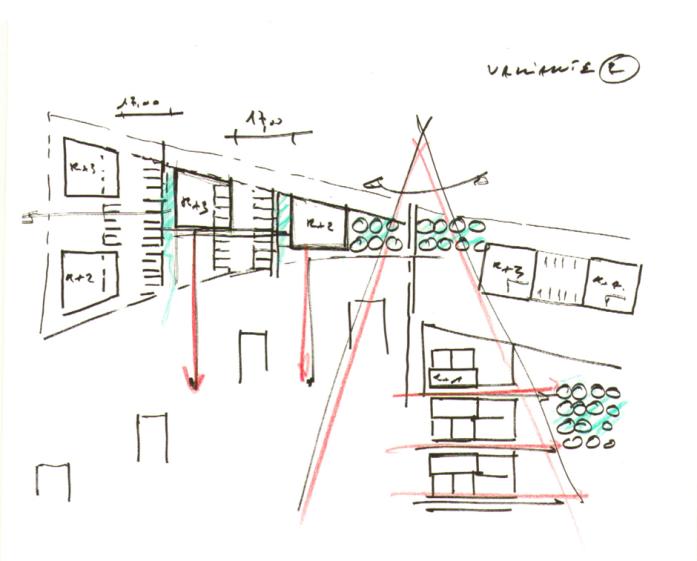 VARIANTE 2
17,00
17,00
R+3
R+3
R+2
R+2
R+3
R+1